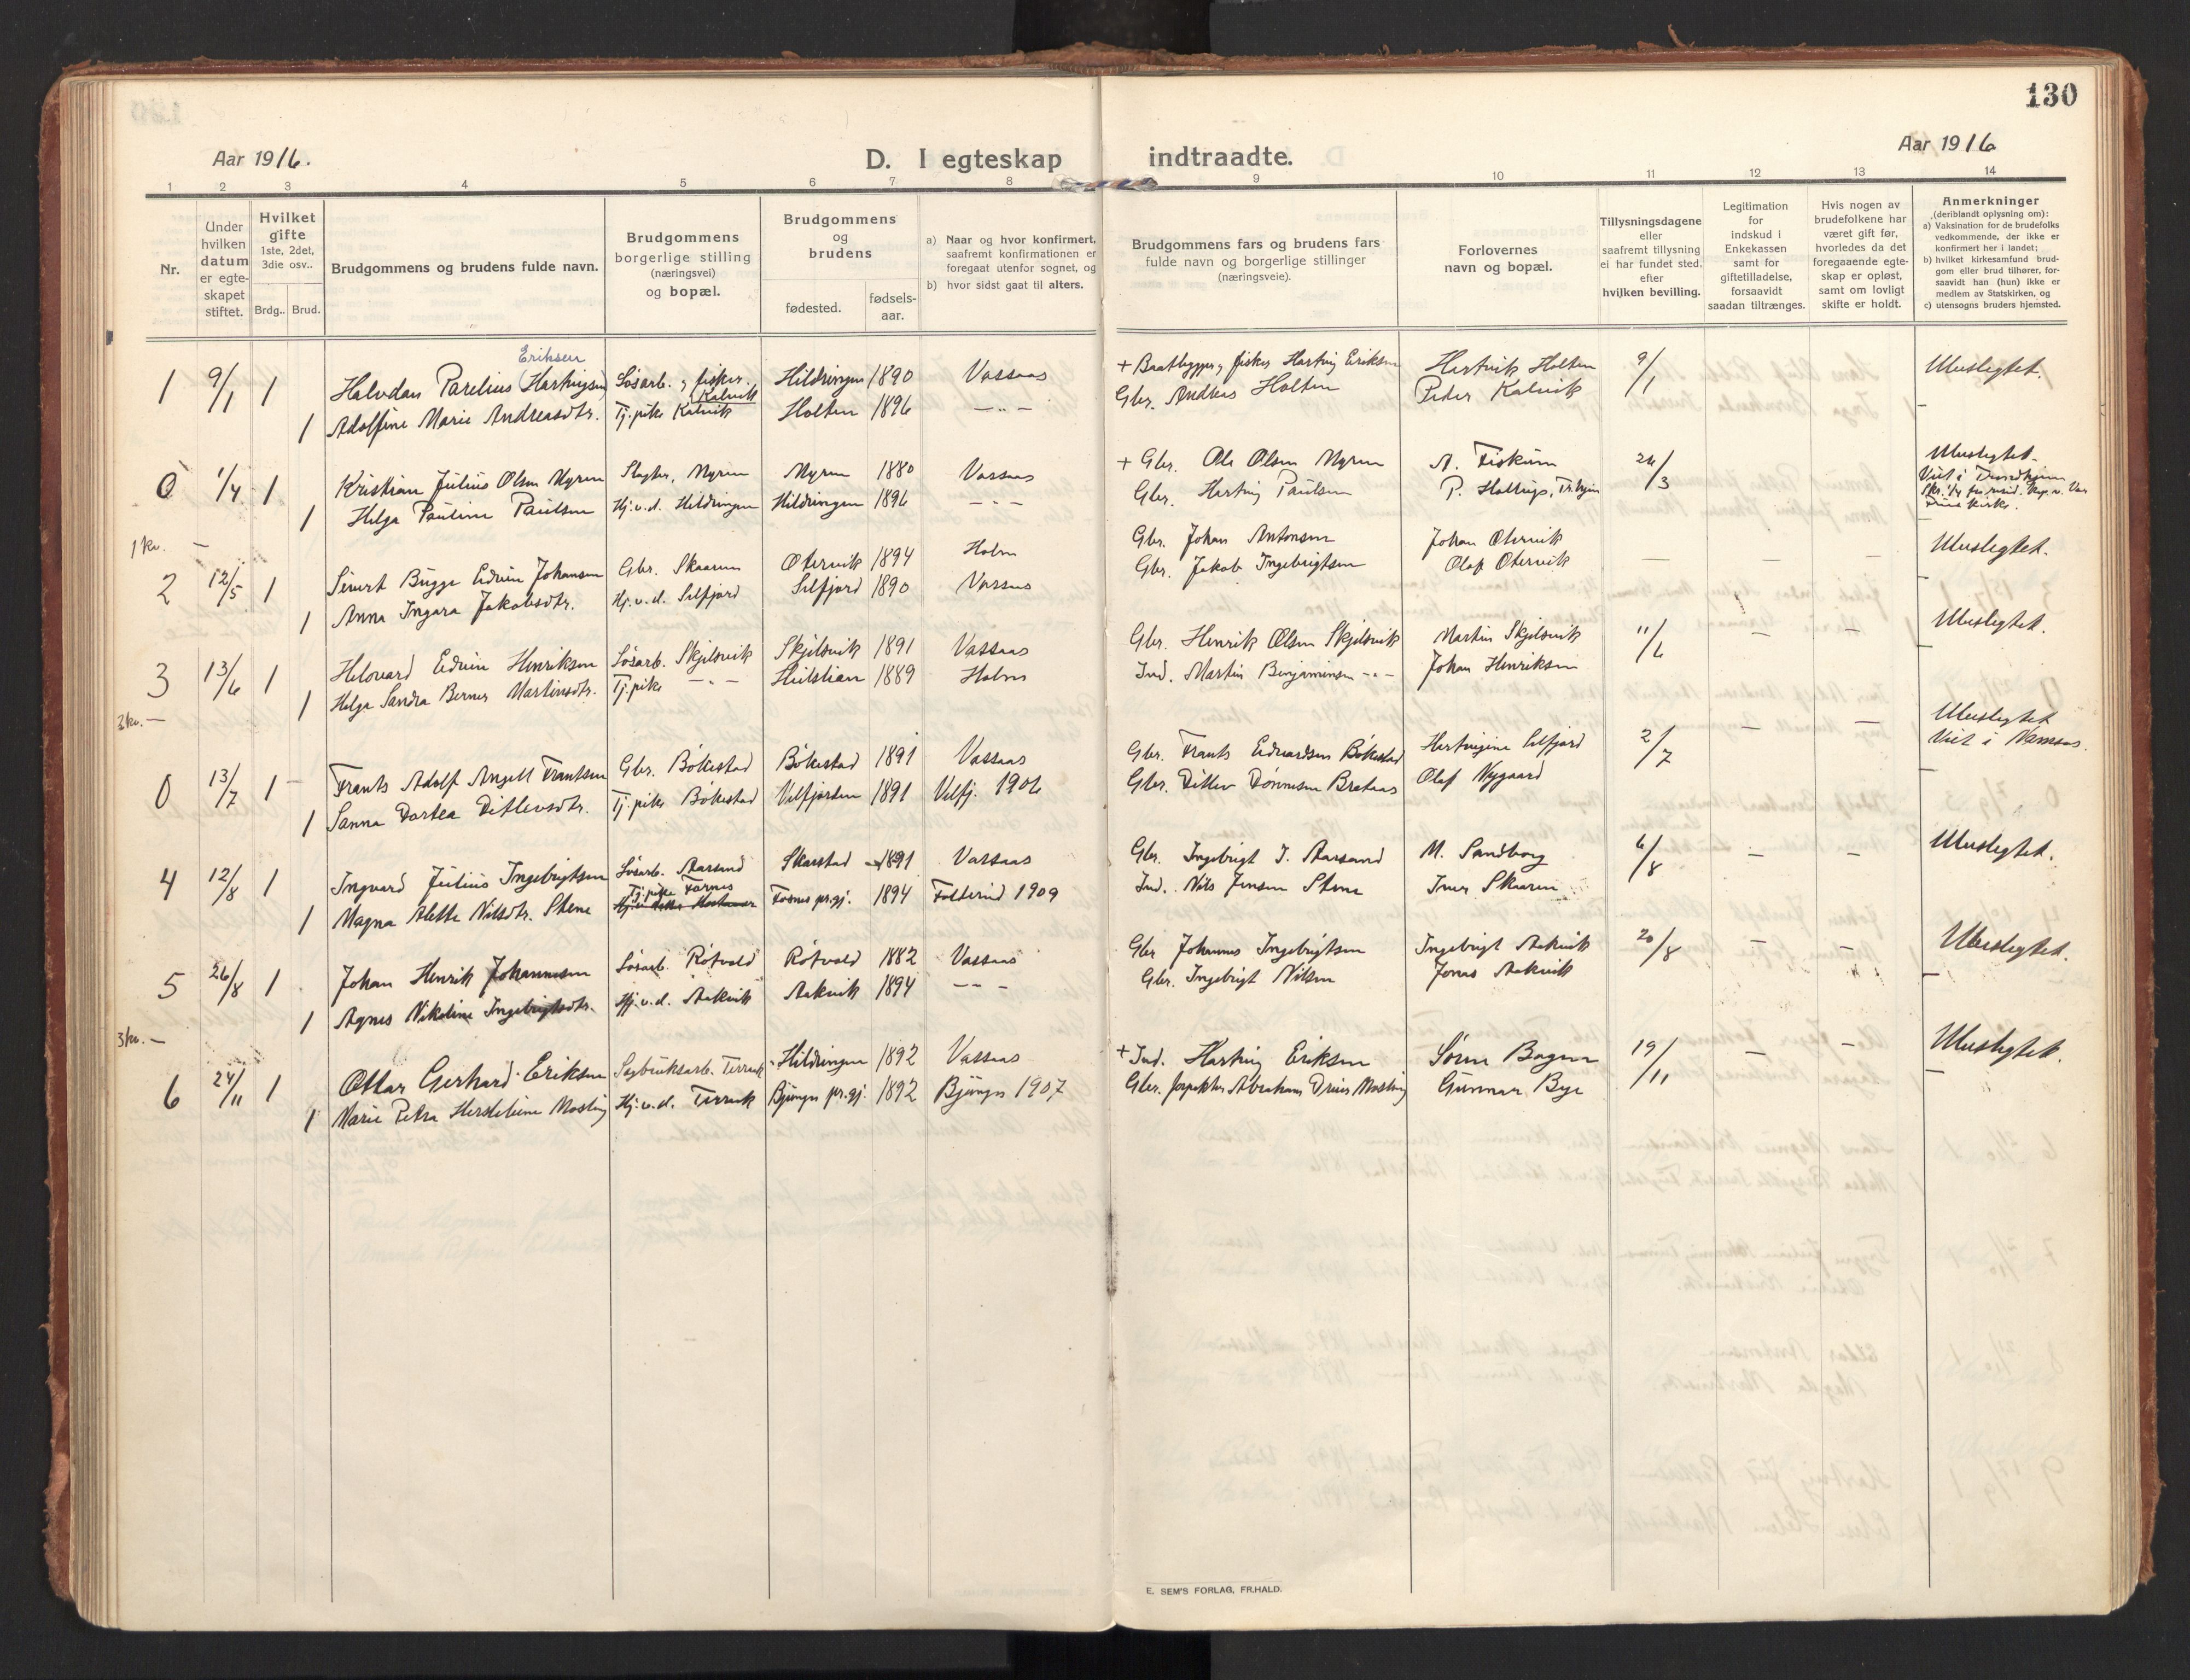 130
Aar 1916.
D. I egteskap indtraadte.
Aar 1916
1 2 3 4 5 6 7 8 9 10 11 12 13 14
Nr.
Under hvilken datum er egteskapet stiftet.
Hvilket gifte 1ste, 2det, 3die osv..
Brdg.. Brud.
Brudgommens og brudens fulde navn.
Brudgommens borgerlige stilling (næringsvei) og bopæl.
Brudgommens og brudens
fødested.
fødsels-aar.
a) Naar og hvor konfirmert, saafremt konfirmationen er foregaat utenfor sognet, og
b) hvor sidst gaat til alters.
Brudgommens fars og brudens fars fulde navn og borgerlige stillinger (næringsveie).
Forlovernes navn og bopæl.
Tillysningsdagene eller saafremt tillysning ei har fundet sted. efter hvilken bevilling.
Legitimation for indskud i Enkekassen samt for giftetilladelse, forsaavidt saadan tiltrænges.
Hvis nogen av brudefolkene har været gift før, hvorledes da det foregaaende egteskap er opløst, samt om lovligt skifte er holdt.
Anmerkninger (deriblandt oplysning om):
a) Vaksination for de brudefolks vedkommende, der ikke er konfirmert her i landet;
b) hvilket kirkesamfund brudgom eller brud tilhører, forsaavidt han (hun) ikke er medlem av Statskirken, og
c) utensogns bruders hjemsted.
Eriksen
1 9/1 1 Halvdan Parelius (Hartvigsen) Løsarb. og fisker. Kalvik Hildringen 1890 Vassaas + Baatbygger, fisker Hartvig Eriksen Hartvik Holten 9/1 Ubeslegtet.
1 Adolfine Marie Andreasdtr. Tj.pike Kalvik Holten 1896 — " — Gbr. Andreas Holten Peder Kalvik
0 1/4 1 Kristian Julius Olsen Myren Slagter, Myren Myren 1880 Vassaas + Gbr. Ole Olsen Myren A. Fiskum 26/3 Ubeslegtet.
1 Helga Pauline Paulsen Hj.v.d. Hildringen Hildringen 1896 — " — Gbr. Hartvig Paulsen P. Haltrup, Tr.hjem Viet i Trondhjem
1 kv. —
2 12/5 1 Sivert Bugge Edvin Johansen Gbr. Skaaren Otervik 1894 Holm Gbr. Johan Antonsen Johan Otervik — — — Ubeslegtet.
1 Anna Ingara Jakobsdtr. Hj.v.d. Silfjord Silfjord 1890 Vassaas Gbr. Jakob Ingebrigtsen Olaf Otervik
3 13/6 1 Helovard Edvin Henriksen Løsarb. Skjelsvik Skjelsvik 1891 Vassaas Gbr. Henrik Olsen Skjelsvik Martin Skjelsvik 11/6 — — Ubeslegtet.
1 Helga Sandra Berner Martinsdtr. Tj.pike — " — 1889 Holm Ind. Martin Benjaminsen — " — Johan Henriksen
3 kv. —
0 13/7 1 Frants Adolf Angell Frantsen Gbr. Bökestad Bökestad 1891 Vassaas Gbr. Frants Edvardsen Bökestad Hartvigine Silfjord 2/7 — — Ubeslegtet
1 Sanna Dortea Ditlevsdtr. Tj.pike Bökestad Velfjorden 1891 Velfj. 1906 Gbr. Ditlev Tønnesen Brataas Olaf Nygaard Viet i Namsos.
4 12/8 1 Ingvard Julius Ingebrigtsen Løsarb. Aarsand Skarstad 1891 Vassaas Gbr. Ingebrigt J. Aarsand M. Sandborg 6/8 — — Ubeslegtet.
1 Magna Alette Nilsdtr. Stene Tj.pike Fosnes pr.gj. 1894 Folderied 1909 Ind. Nils Jensen Stene Iver Skaaren
5 26/8 1 Johan Henrik Johannesen Løsarb. Röfvold Röfvold 1882 Vassaas Gbr Johannes Ingebrigtsen Ingebrigt Aakvik 20/8 — — Ubeslegtet.
1 Agnes Nikoline Ingebrigtsdtr. Hj.v.d. Aakvik Aakvik 1894 — " — Gbr. Ingebrigt Nilsen Jonas Aakvik
3 kv. —
6 24/11 1 Ottar Gerhard Eriksen Sagbruksarb. Terraak Hildringen 1892 Vassaas + Ind. Hartvig Eriksen Sören Bogen 19/11 — — Ubeslegtet.
1 Marie Petra Hersleline Mosling Hj.v.d. Terraak Bjungn pr.gj. 1892 Bjungn 1907 Gbr. Inspektör Abraham Dreier Mosling Gunnar Bye
E. SEM'S FORLAG, FR.HALD.